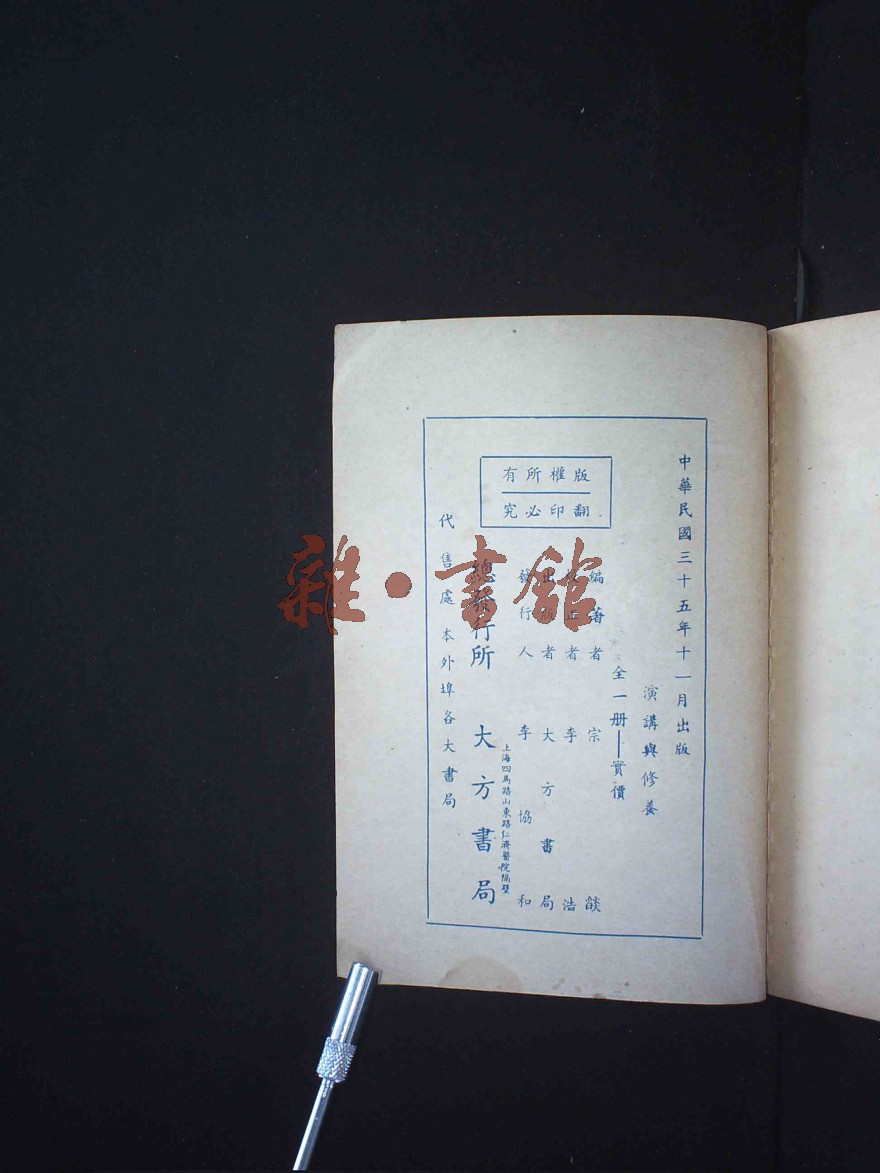 中華民國三十五年十一月出版
演講與修養
全一册——實價
編著者 宗燄
校正者 李浩
出版者 大方書局
發行人 李協和
版權所有
翻印必究
上海四馬路山東路仁濟醫院隔壁
總發行所 大方書局
代售處 本外埠各大書局
雜·書館